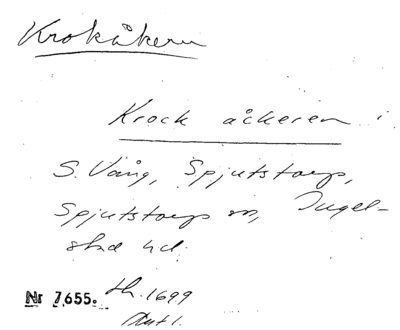 Krokåkern
Krock åckeren i
S. Vång, Spjutstorp,
Spjutstorps sn, Ingel-
stad hd.
Nr 7655. lh. 1699
Ant 1.